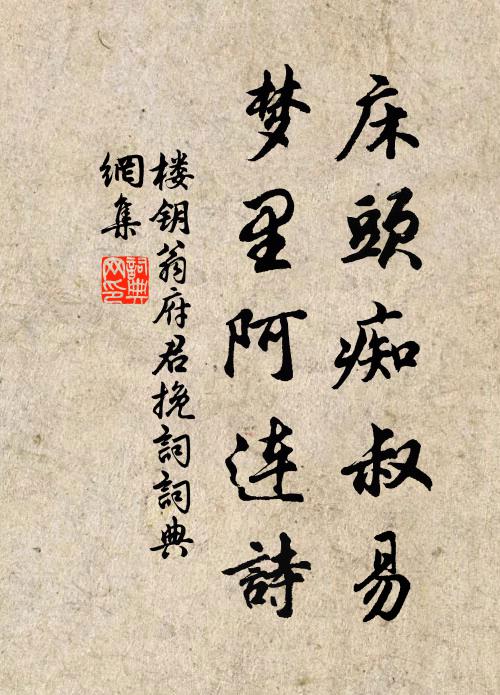 床頭痴叔易
梦里阿连詩
楼钥翁府君挽詞詞典
網集
詞典
网印